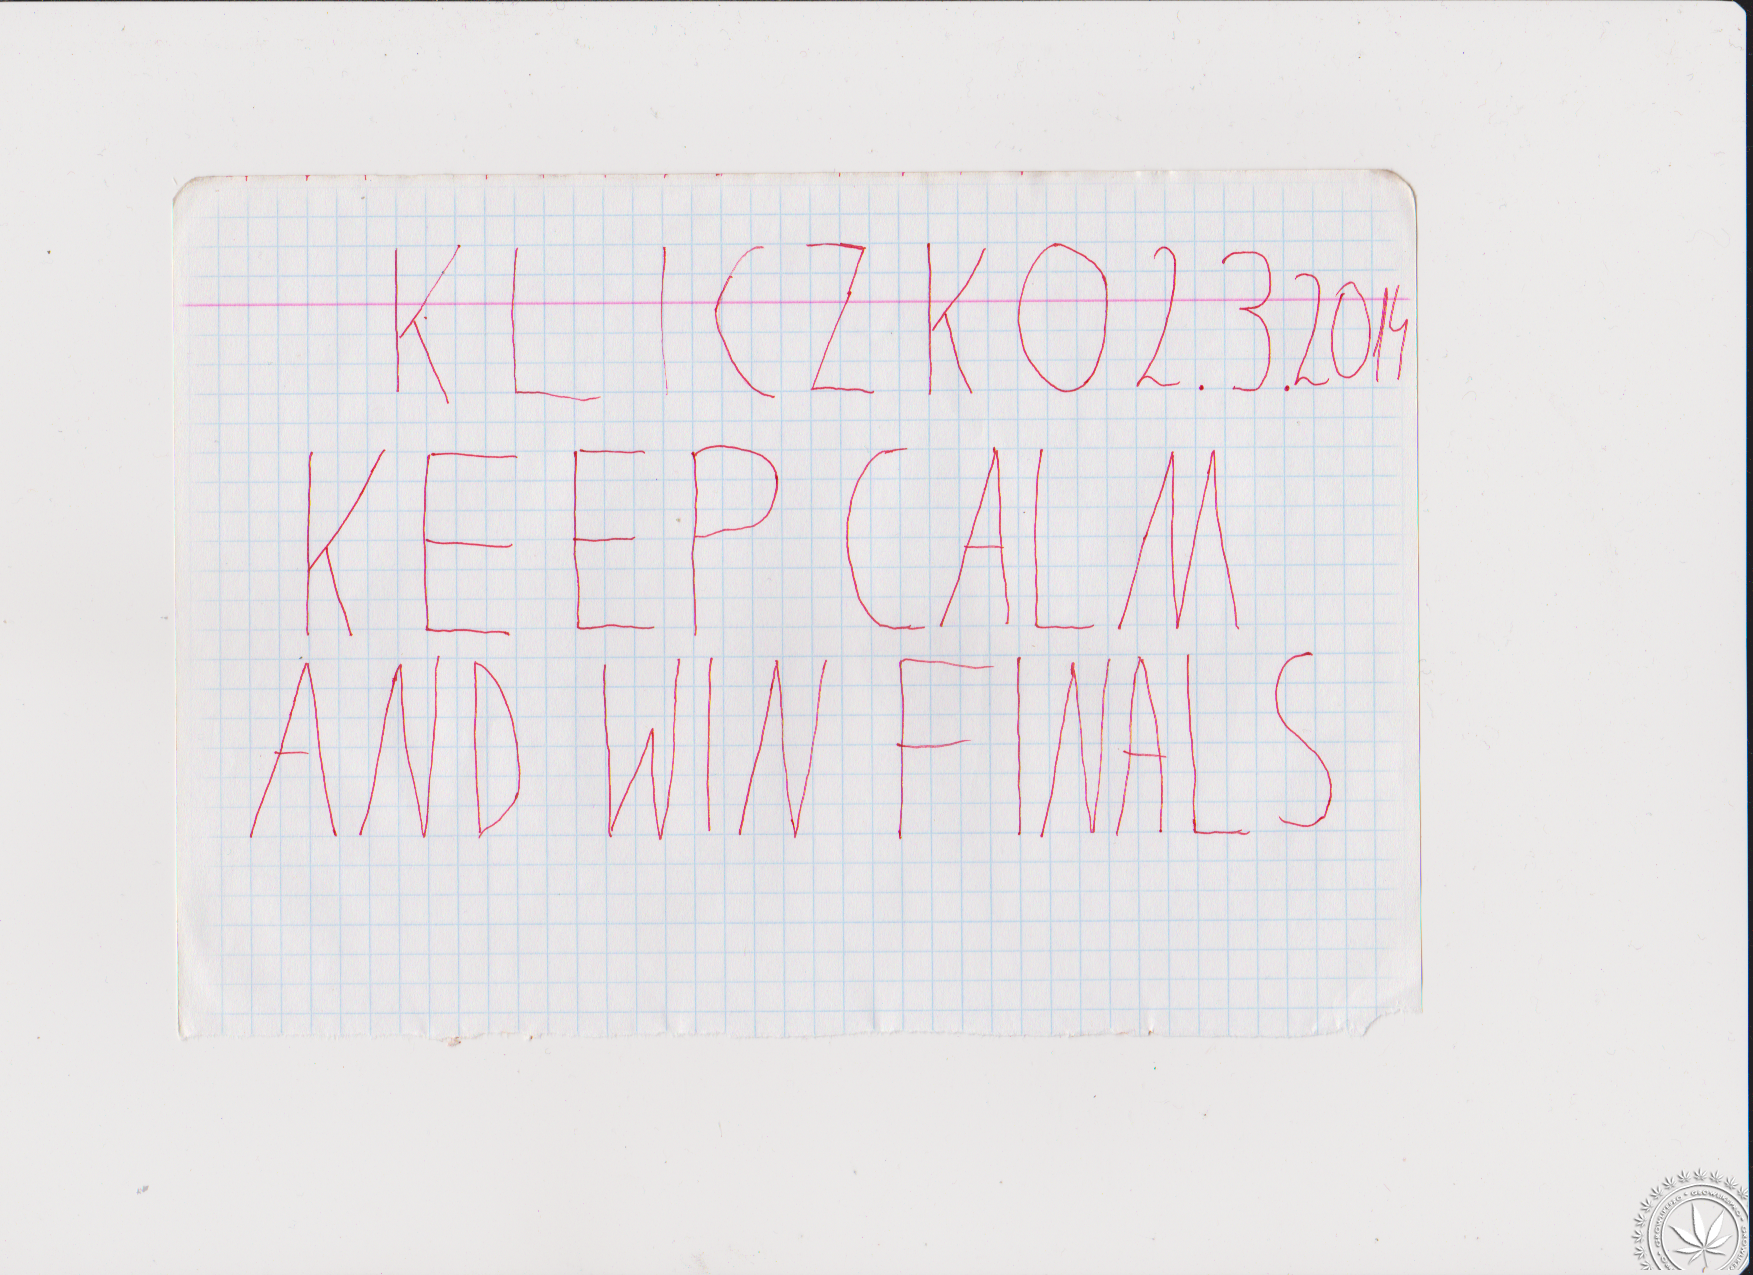 KLICZKO 2.3.2014
KEEP CALM
AND WIN FINALS